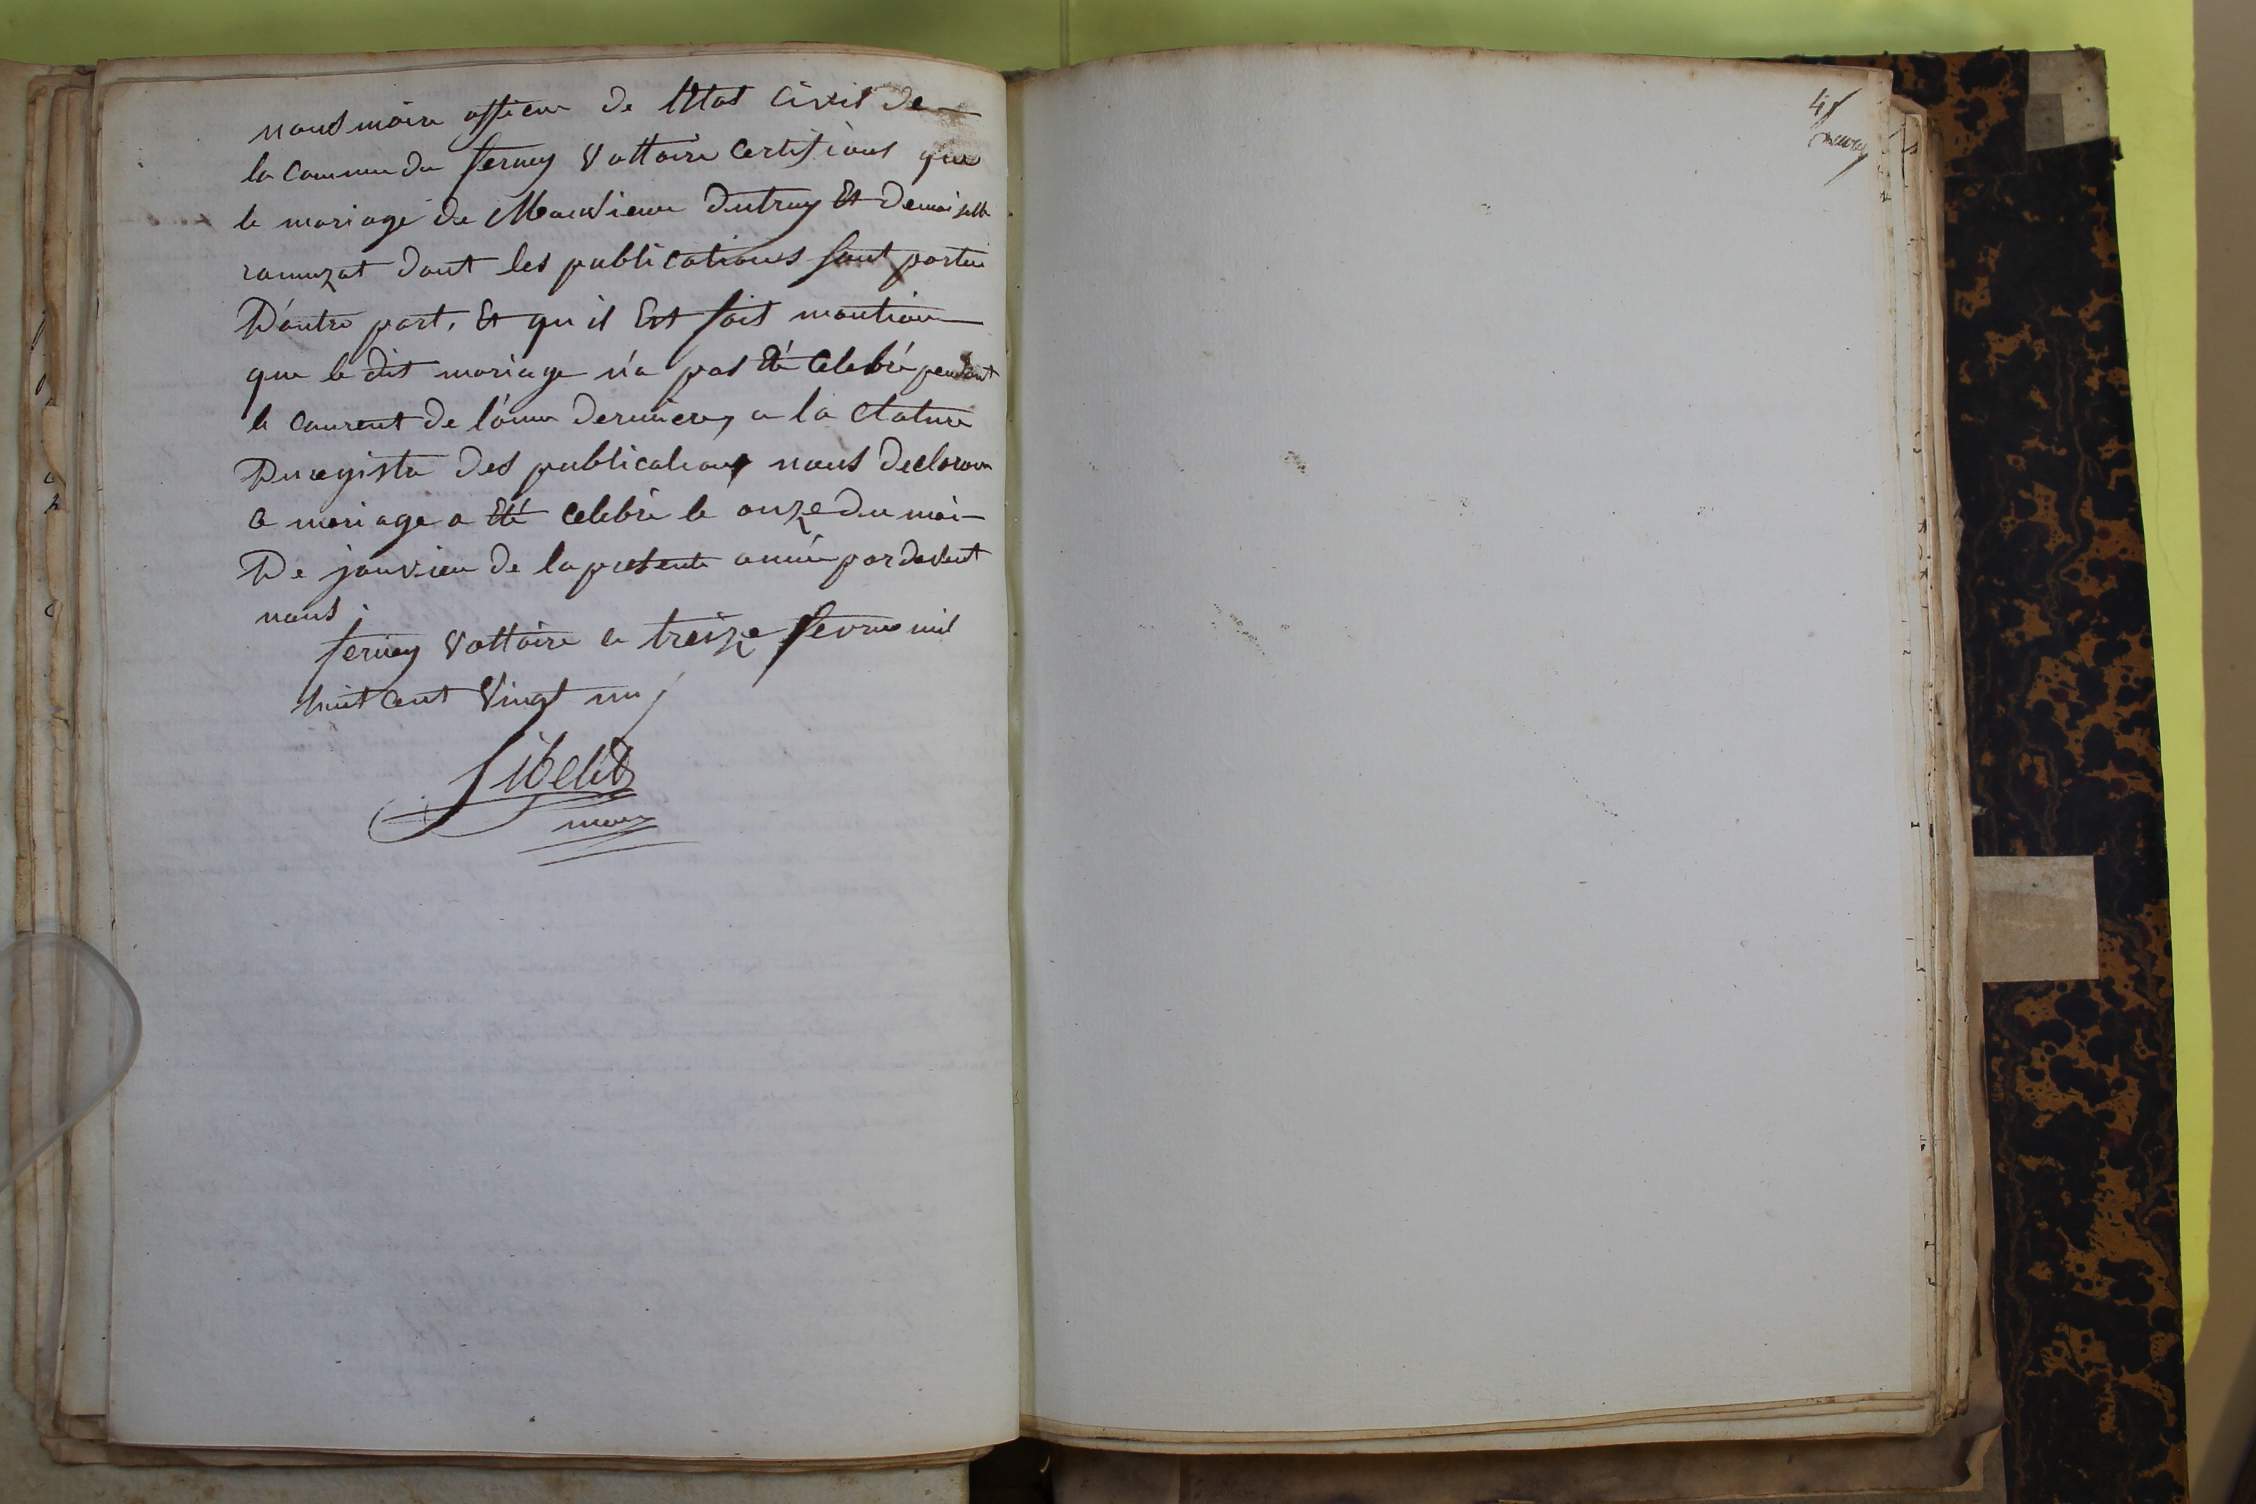 nous maire officier de l'Etat Civil de
la commune de ferney Voltaire Certifions que
le mariage de Monsieur Dutruy Et Demoiselle
ramuzat dont les publications sont portées
D'autre part, Et qu'il Est fait mention
que le dit mariage n'a pas été Celebré pendant
le courent de l'année derniere, a la Cloture
Du registre des publications nous declarons
ce mariage a été celebré le onze du moi
De janvier de la presente année par devent
nous.
ferney Voltaire le treize fevrier mil
huit cent Vingt un
maire